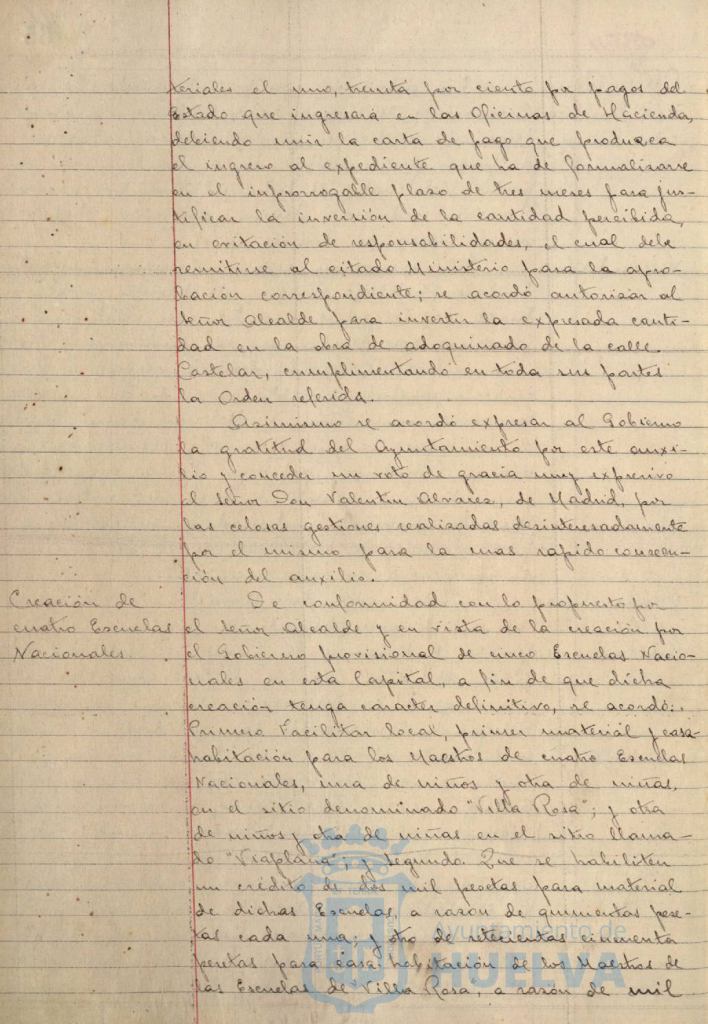 teriales el uno, treinta por ciento por pagos del
Estado que ingresará en las Oficinas de Hacienda,
debiendo unir la carta de pago que produzca
el ingreso al expediente que ha de formalizarse
en el improrrogable plazo de tres meses para jus-
tificar la inversión de la cantidad percibida,
en evitación de responsabilidades, el cual debe
remitirse al citado Ministerio para la apro-
bación correspondiente; se acordó autorizar al
Señor Alcalde para invertir la expresada canti-
dad en la obra de adoquinado de la calle
Castelar, cumplimentando en toda sus partes
la Orden referida.
Asimismo se acordó expresar al Gobierno
la gratitud del Ayuntamiento por este auxi-
lio y conceder un voto de gracia muy expresivo
al Señor Don Valentin Alvarez, de Madrid, por
las celosas gestiones realizadas desinteresadamente
por el mismo para la mas rapido consecu-
ción del auxilio.
Creación de
cuatro Escuelas
Nacionales.
De conformidad con lo propuesto por
el Señor Alcalde y en vista de la creación por
el Gobierno provisional de cinco Escuelas Nacio-
nales en esta Capital, a fin de que dicha
creación tenga caracter definitivo, se acordó:
Primero Facilitar local, primer material y casa
habitación para los Maestros de cuatro Escuelas
Nacionales, una de niños y otra de niñas,
en el sitio denominado "Villa Rosa"; y otra
de niños y otra de niñas en el sitio llama-
do "Viaplana"; y segundo. Que se habiliten
un crédito de dos mil pesetas para material
de dichas Escuelas, a razón de quinientas pese-
tas cada una; y otro de setecientas cincuenta
pesetas para casa habitación de los Maestros de
las Escuelas de Villa Rosa, a razón de mil
Ayuntamiento de
HUELVA